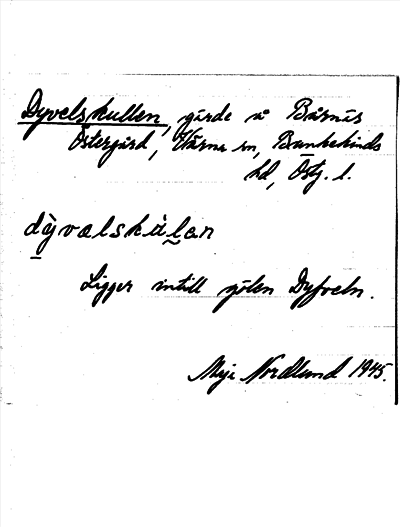 Dyvelskullen, gärde å Bårnäs
Östergård, Värna sn, Bankekinds
hd, Östg. l.
dỳvalskùlan
Ligger intill gölen Dyfveln.
Maja Nordlund 1945.